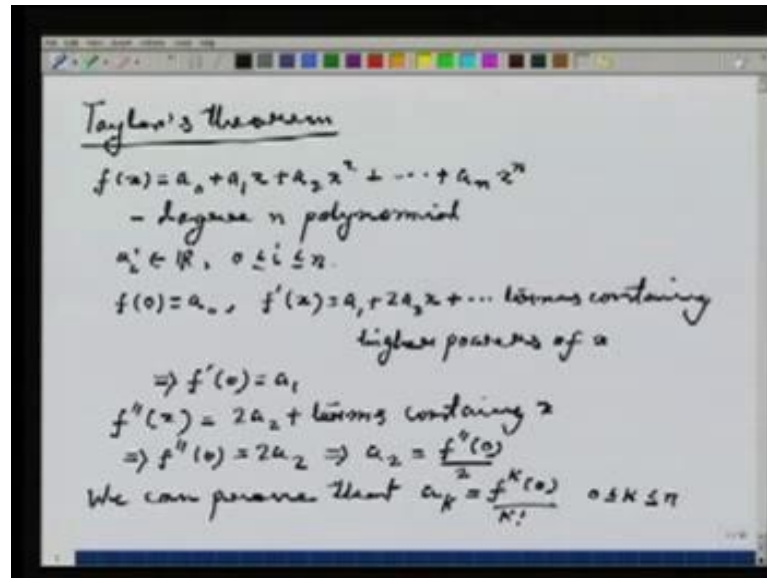 Taylor's theorem
f(x) = a₀ + a₁x + a₂x² + ... + aₙxⁿ
- degree n polynomial
aᵢ ∈ ℝ, 0 ≤ i ≤ n.
f(0) = a₀, f'(x) = a₁ + 2a₂x + ... terms containing
higher powers of x
⇒ f'(0) = a₁
f''(x) = 2a₂ + terms containing x
⇒ f''(0) = 2a₂ ⇒ a₂ = f''(0)/2
We can prove that aₖ = fᴷ(0)/K! 0 ≤ K ≤ n